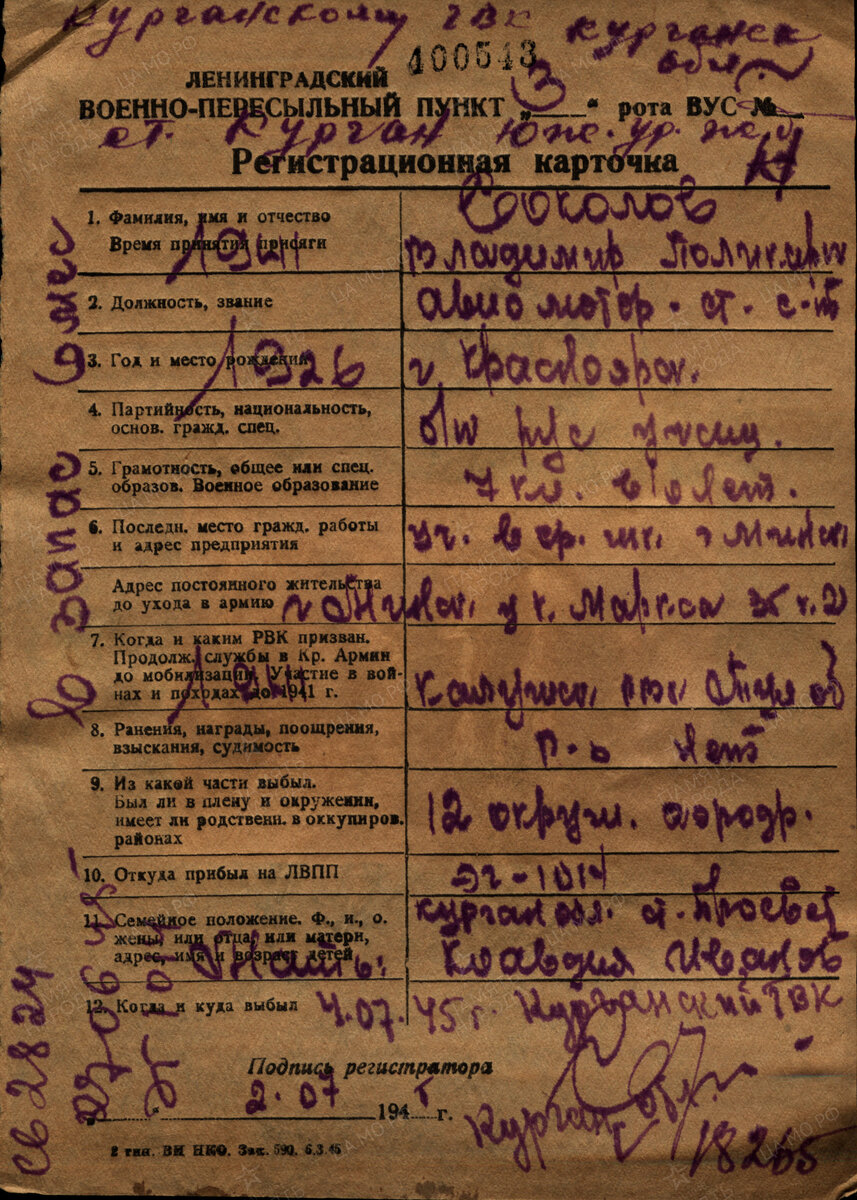 Курганскому ГВК Курганск
обл.
400543
ЛЕНИНГРАДСКИЙ
ВОЕННО-ПЕРЕСЫЛЬНЫЙ ПУНКТ „3“ рота ВУС №
ст. Курган Юж. ур. ж. д.
Регистрационная карточка
1. Фамилия, имя и отчество
Соколов
Время принятия присяги
1941
Владимир
2. Должность, звание
авиомотор. ст. с-т
3. Год и место рождения
1926
г. Красноярск.
4. Партийность, национальность,
основ. гражд. спец.
б/п р/с учащ.
5. Грамотность, общее или спец.
образов. Военное образование
7 кл.
6. Последн. место гражд. работы
и адрес предприятия
уч. в ср. шк. г Минск
Адрес постоянного жительства
до ухода в армию
г Минск. у К. Маркса
7. Когда и каким РВК призван.
Продолж. службы в Кр. Армии
до мобилизации. Участие в вой-
нах и походах до 1941 г.
1941
8. Ранения, награды, поощрения,
взыскания, судимость
9. Из какой части выбыл.
Был ли в плену и окружении,
имеет ли родственн. в оккупиров.
районах
12 окруж. аэродр.
10. Откуда прибыл на ЛВПП
эг-1014
11. Семейное положение. Ф., и., о.
жены, или отца, или матери,
адрес, имя и возраст детей
Мать:
Курган обл. ст. Просвет
Клавдия Иванов
12. Когда и куда выбыл
4.07.45 г. Курганский ГВК
Подпись регистратора
2.07 1945 г.
Курган обл.
18265
2 тип. ВИ НКО. Зак. 590. 6.3.45
в запас
св 2824